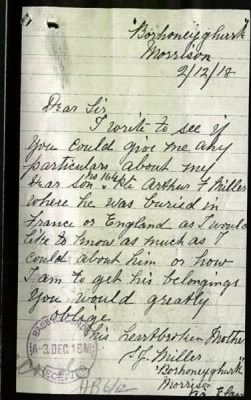 Morrison
2/12/18
Dear Sir
I write to see if
you could give me any
particulars about my
Dear Son Pte Arthur F Miller
where he was buried in
France or England as I would
like to know as much as
could about him or how
I am to get his belongings
You would greatly
oblige
his heartbroken Mother
Miller
Morrison
3 DEC 18